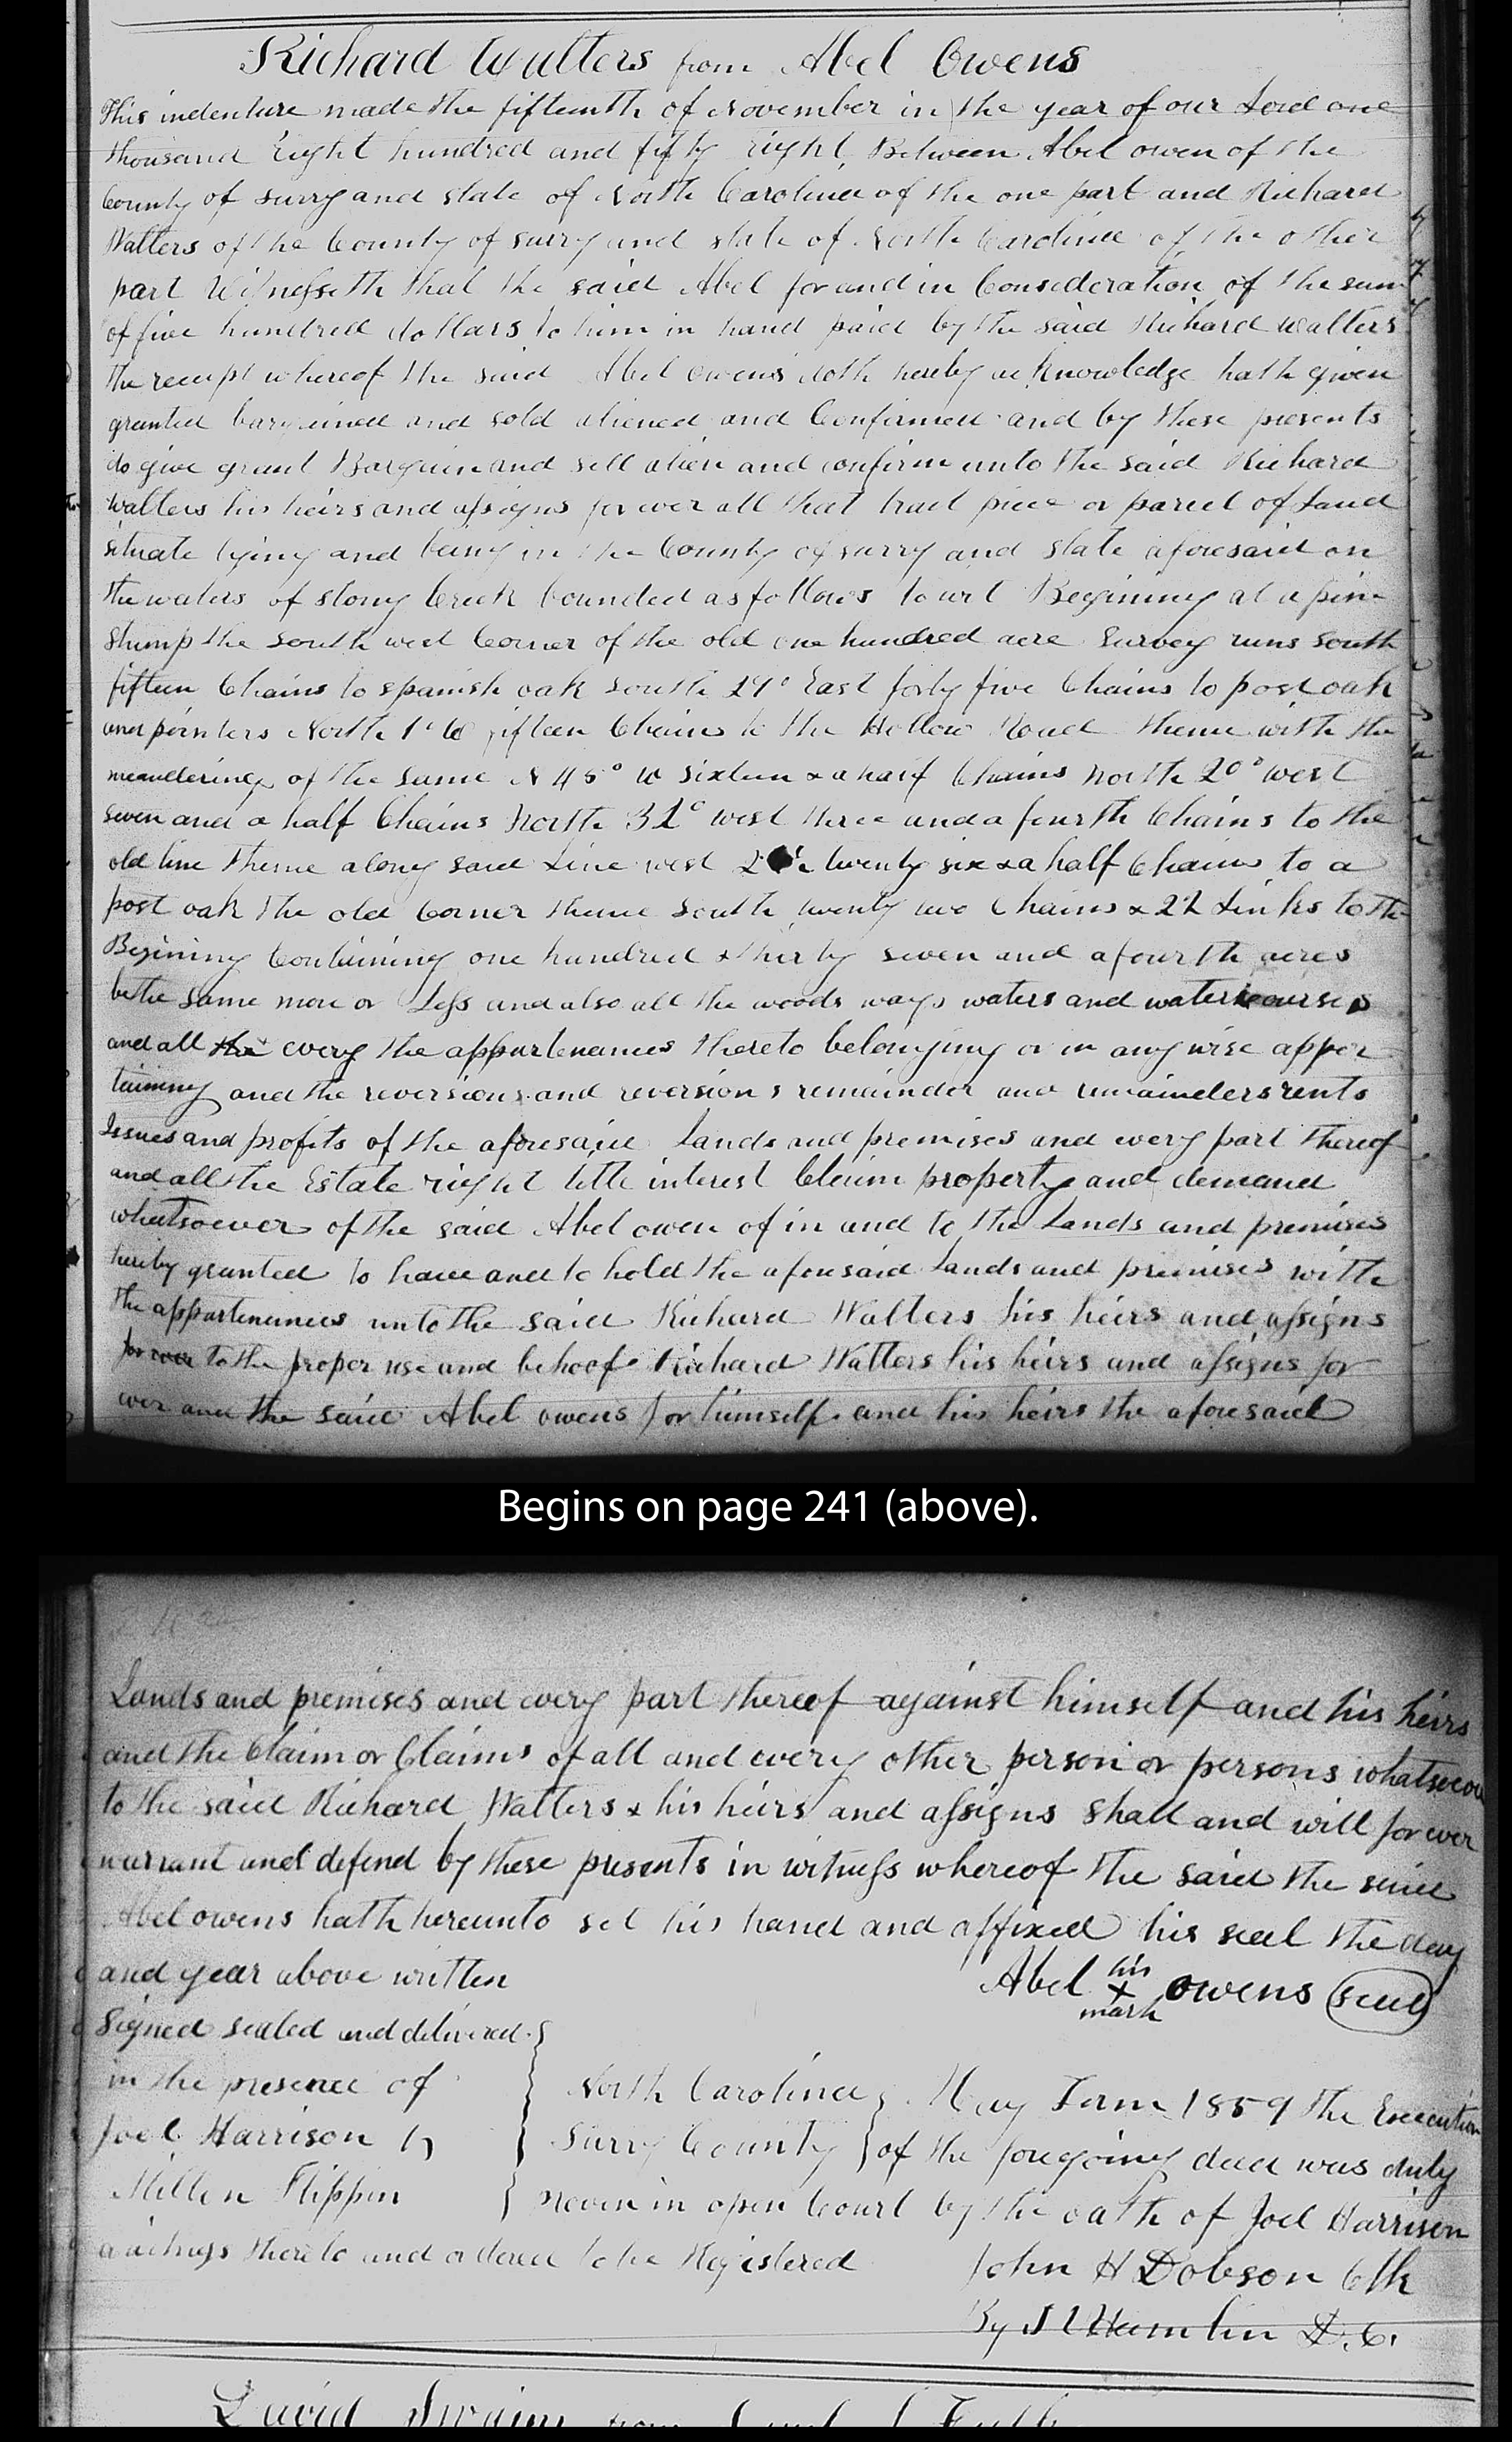 Richard Walters from Abel Owens
This indenture made the fifteenth of November in the year of our Lord one
thousand Eight hundred and fifty eight Between Abel owen of the
County of surry and state of North Carolina of the one part and Richard
Walters of the County of surry and state of North Carolina of the other
part Witnesseth that the said Abel for and in Consideration of the sum
of five hundred dollars to him in hand paid by the said Richard walters
the receipt whereof the said Abel owens doth hereby acknowledge hath given
granted bargained and sold aliened and Confirmed and by these presents
do give grant Bargain and sell alien and confirm unto the said Richard
walters his heirs and assigns forever all that tract piece or parcel of Land
situate lying and being in the County of surry and state aforesaid on
the waters of stony Creek bounded as follows to wit Begining at a pine
stump the south west Corner of the old one hundred acre survey runs south
fifteen Chains to spanish oak south 29° East forty five Chains to post oak
and pointers North 1° W fifteen Chains to the Hollow Road thence with the
meanderings of the same N 45° W sixteen & a half Chains North 20° west
seven and a half Chains North 32° west three and a fourth Chains to the
old line thence along said Line west twenty six & a half Chains to a
post oak the old Corner thence south twenty two Chains & 22 Links to the
Begining Containing one hundred & thirty seven and a fourth acres
be the same more or Less and also all the woods ways waters and watercourses
and all the every the appurtenances thereto belonging or in any wise apper
taining and the reversions and reversions remainder and remainders rents
Issues and profits of the aforesaid Lands and premises and every part thereof
and all the Estate right title interest Claim property and demand
whatsoever of the said Abel owen of in and to the Lands and premises
hereby granted to have and to hold the aforesaid Lands and premises with
the appartenances unto the said Richard Walters his heirs and assigns
for ever to the proper use and behoof Richard Walters his heirs and assigns for
ever and the said Abel owens for himself and his heirs the aforesaid
Begins on page 241 (above).
Lands and premises and every part thereof against himself and his heirs
and the Claim or Claims of all and every other person or persons whatsoever
to the said Richard Walters & his heirs and assigns shall and will forever
warrant and defend by these presents in witness whereof the said the said
Abel owens hath hereunto set his hand and affixed his seal the day
and year above written
Abel his X mark owens (seal)
Signed sealed and delivered
in the presence of
Joel Harrison
Millen Flippin
North Carolina May Term 1859 The Execution
Surry County of the foregoing deed was duly
proven in open Court by the oath of Joel Harrison
a witness thereto and ordered to be Registered
John H Dobson Clk
By Hamlin D.C.
David Swaim from